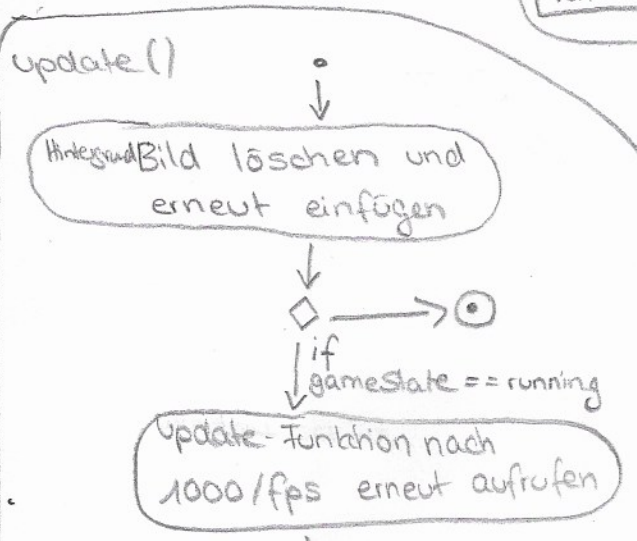 update()
HintergrundBild löschen und
erneut einfügen
if
gameState == running
update-Funktion nach
1000/fps erneut aufrufen